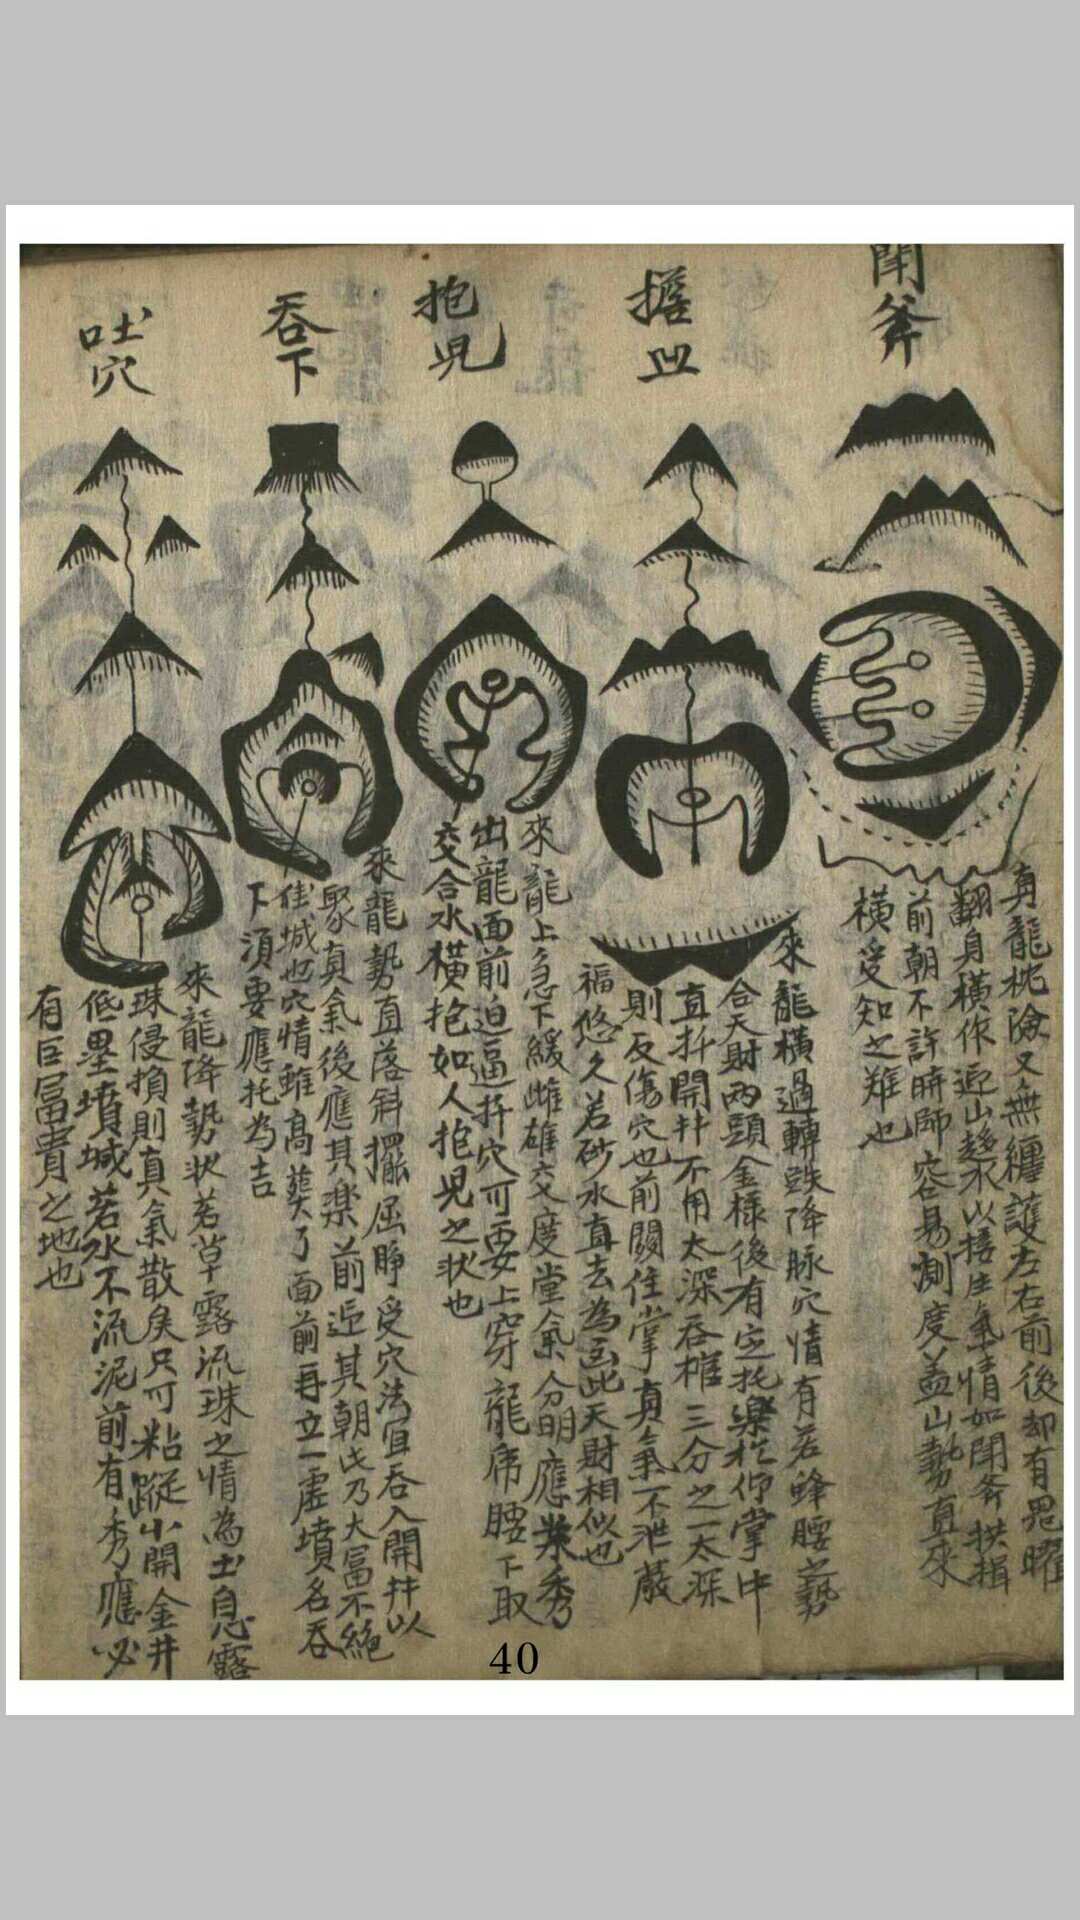 開斧
真龍枕險又無纏護左右前後却有鬼曜
翻身橫作迎山趨水以接生氣情如開斧拱揖
前朝不許時師容易測度蓋山勢直來
橫受知之難也
擔凹
來龍橫過轉跌降脉穴情有若蜂腰之勢
合天財兩頭金樣後有定托樂於仰掌中
直扦開井不用太深吞棺三分之一太深
則反傷穴也前關住掌真氣不泄蔭
福悠久若砂水直去為凶此天財相似也
抱兒
來龍上急下緩雌雄交度堂氣分明應案秀
出龍面前迫逼扦穴可要上穿龍虎腰下取
交合水橫抱如人抱兒之狀也
吞下
來龍勢直落斜擺屈睜受穴法宜吞入開井以
聚真氣後應其樂前迎其朝此乃大富不絕
佳城也穴情雖高葬了面前再立一虛墳名吞
下須要應托為吉
吐穴
來龍降勢狀若草露流珠之情為土息露
珠侵損則真氣散矣只可粘蹤小開金井
低壘墳堿若水不流泥前有秀應必
有巨富貴之地也
40